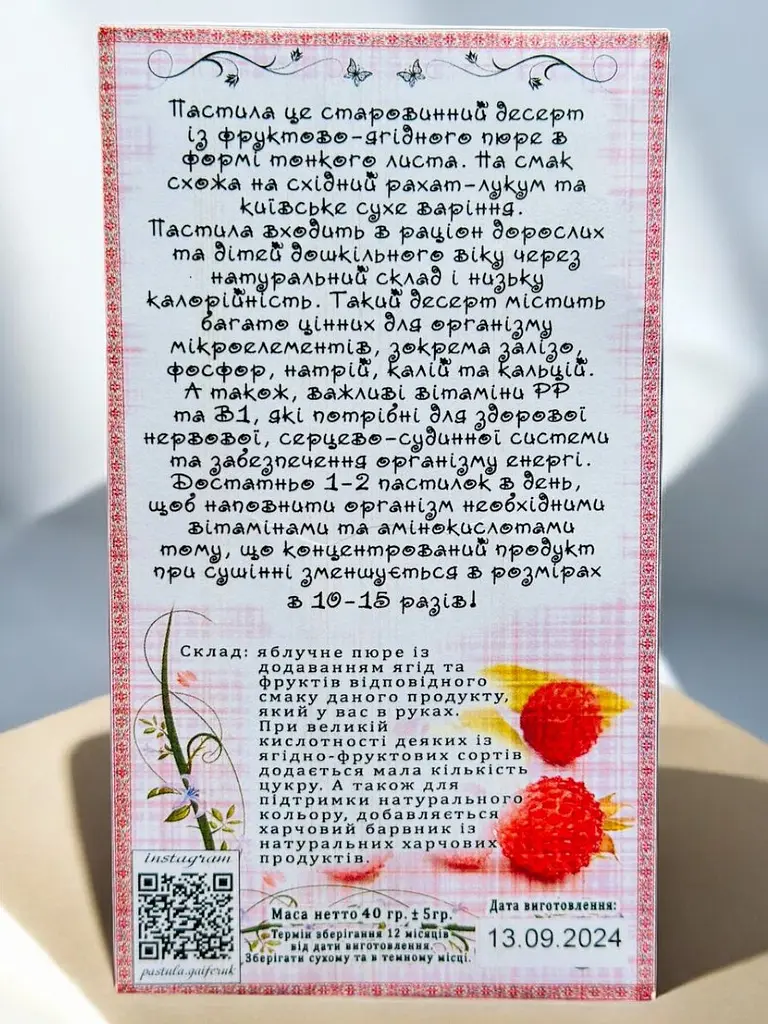 Пастила це старовинний десерт
із фруктово-ягідного пюре в
формі тонкого листа. На смак
схожа на східний рахат-лукум та
київське сухе варіння.
Пастила входить в раціон дорослих
та дітей дошкільного віку через
натуральний склад і низьку
калорійність. Такий десерт містить
багато цінних для організму
мікроелементів, зокрема залізо,
фосфор, натрій, калій та кальцій.
А також, важливі вітаміни РР
та В1, які потрібні для здорової
нервової, серцево-судинної системи
та забезпечення організму енергі.
Достатньо 1-2 пастилок в день,
щоб наповнити організм необхідними
вітамінами та амінокислотами
тому, що концентрований продукт
при сушінні зменшується в розмірах
в 10-15 разів!
Склад: яблучне пюре із
додаванням ягід та
фруктів відповідного
смаку даного продукту,
який у вас в руках.
При великій
кислотності деяких із
ягідно-фруктових сортів
додається мала кількість
цукру. А також для
підтримки натурального
кольору, добавляється
харчовий барвник із
натуральних харчових
продуктів.
instagram
pastula.gaiferuk
Маса нетто 40 гр. ± 5гр.
Термін зберігання 12 місяців
від дати виготовлення.
Зберігати сухому та в темному місці.
Дата виготовлення:
13.09.2024